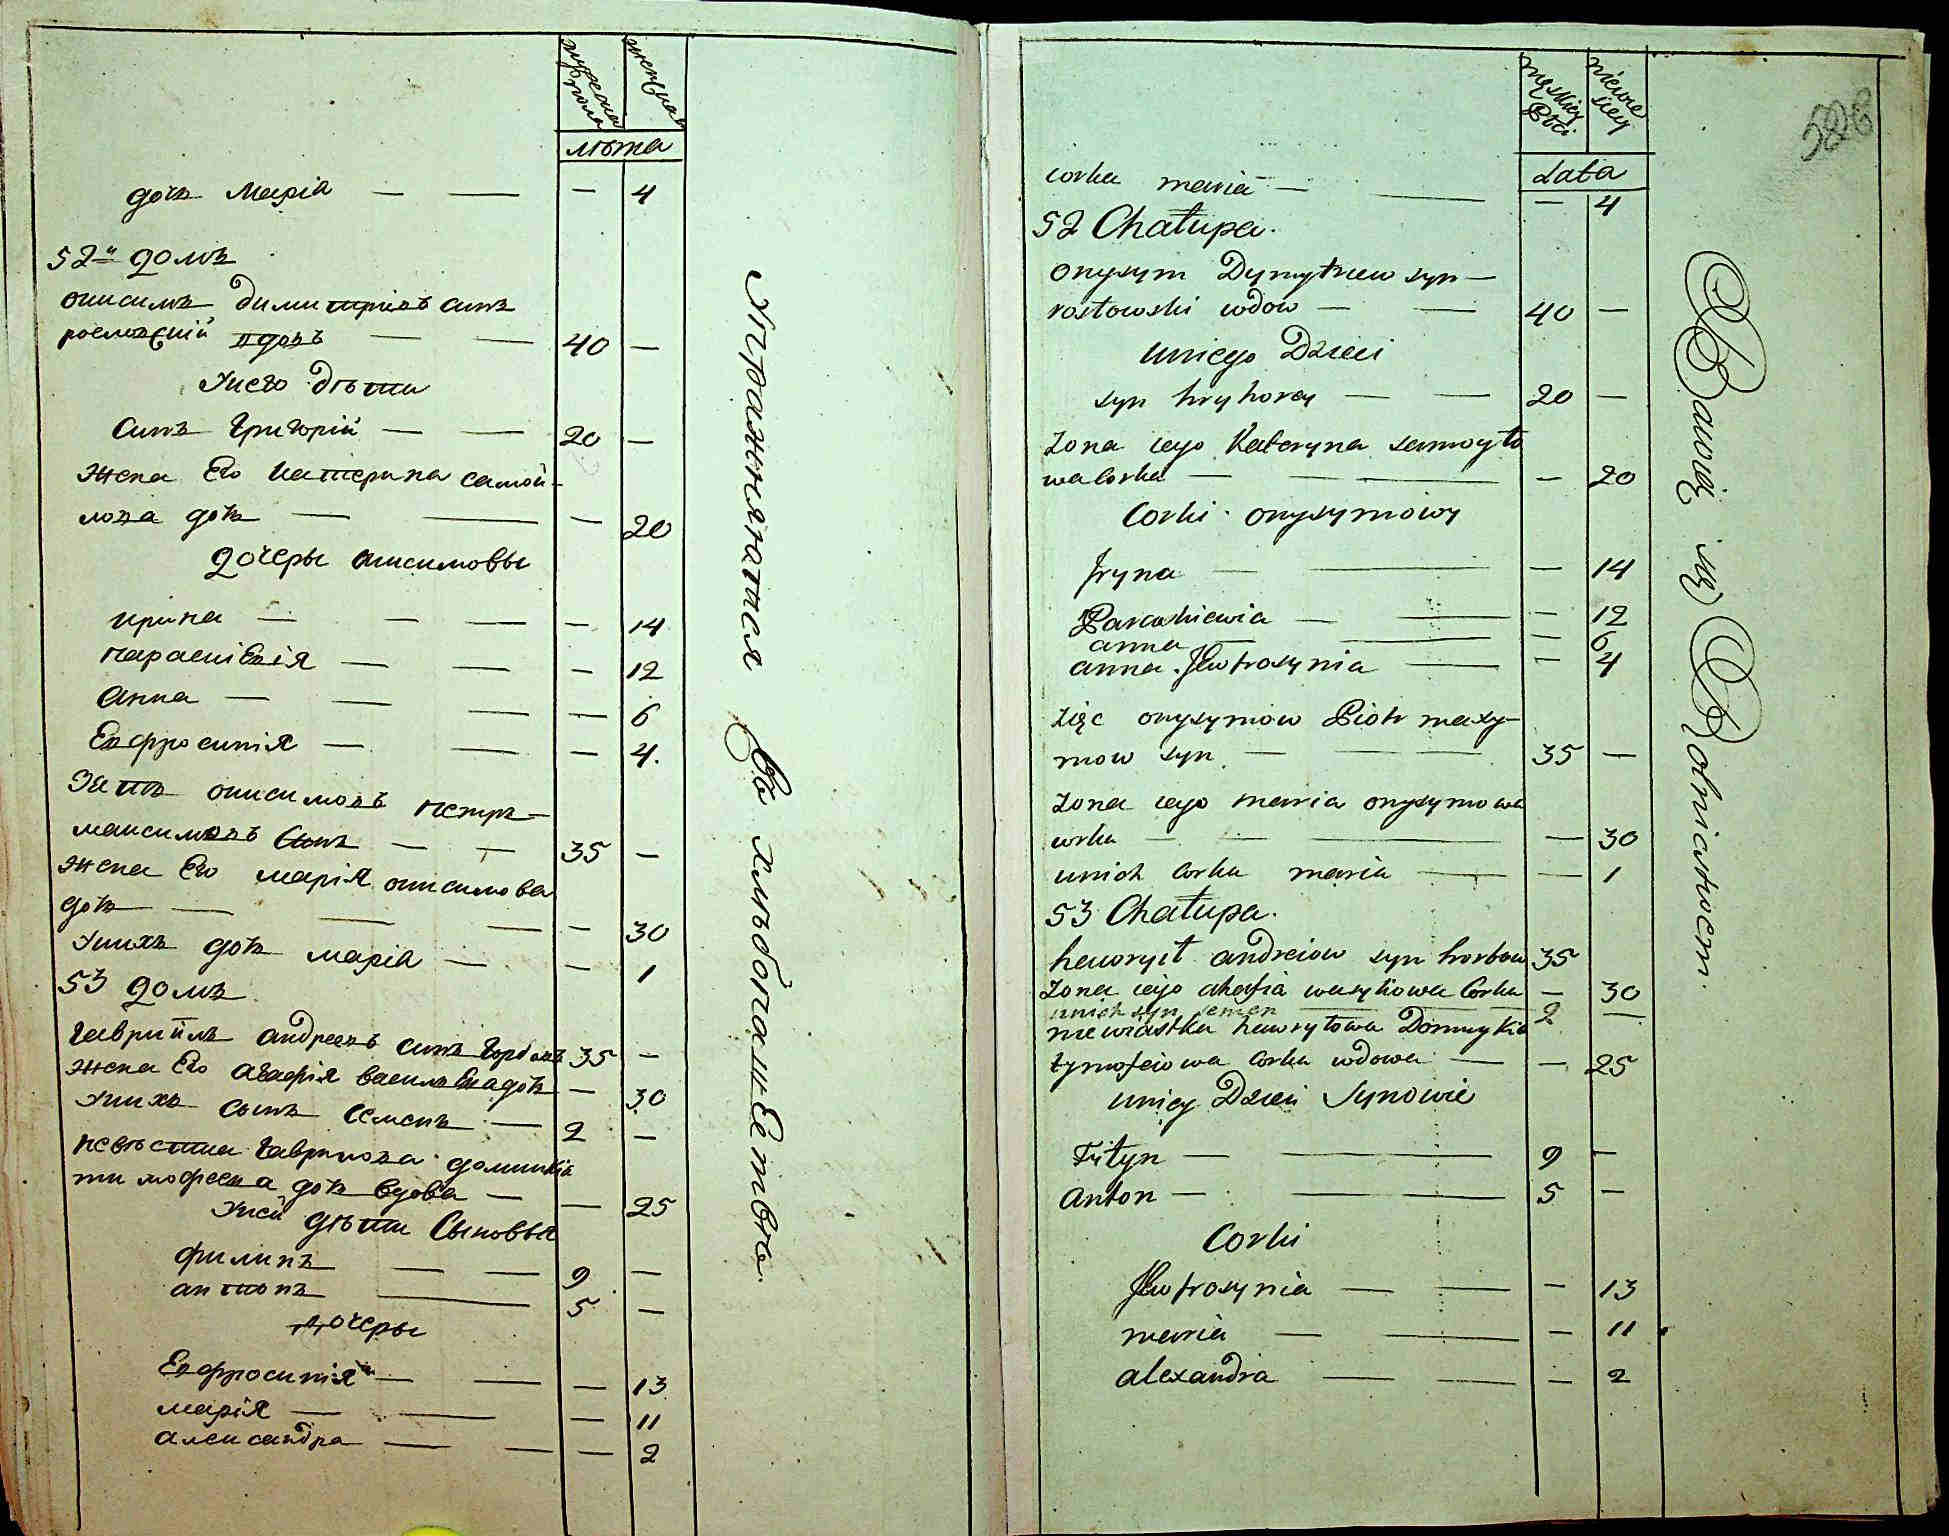 мужеска пола
женска
лѣта
дочь Марія — — — 4
52й домъ
онисимъ димитріевъ синъ
рословскій вдовъ — — 40 —
У него дѣти
Синъ Григорій — — 20 —
Жена Его Катерина самой-
лова дочь — — — 20
дочеры онисимовы
ирина — — — — 14
парасківія — — — 12
Анна — — — — 6
Евфросинія — — — 4.
Зять онисимовъ петръ —
максимовъ Сынъ — — 35 —
Жена Его марія онисимова
дочь — — — — 30
У нихъ дочь марія — — 1
53 домъ
Гаврийлъ андреевъ синъ Горбовъ 35 —
Жена Его агафія василева дочь — 30
У нихъ сынъ Семенъ — 2 —
невѣстка Гаврилова доминикія
тимофеева дочь вдова — — 25
У ней дѣти Сыновья
филипъ — — 9 —
антонъ — 5 —
дочеры
Евфросинія — — — 13
марія — — — 11
александра — — — 2
Упражняются Въ хлѣбопашЕствѣ
męskiey Płci
niewie sciey
Lata
corka maria — — — 4
52 Chałupa.
onysym Dymytrew syn —
rosłowski wdow — — 40 —
u niego Dzieci
syn hryhorey — — 20 —
Zona iego Kateryna samoyło
wa Corka — — — — 20
Corki onysymowy
Jryna — — — 14
Paraskiewia — — — 12
anna — — — 6
anna. Jewfrosynia — — 4
Zięc onysymow Piotr maxy-
mow syn — — — 35 —
Zona iego maria onysymowa
corka — — — 30
u nich Corka maria — — 1
53 Chałupa.
hawryił andreiow syn horbow 35
Zona iego ahafia wasylowa Corka — 30
u nich syn semen — — 2 —
niewiastka hawryłowa Dominykia
tymofeiowa Corka wdowa — — 25
u niey Dzieci Synowie
Filyp — — 9 —
Anton — — 5 —
Corki
Jewfrosynia — — — 13
maria — — — 11
alexandra — — — 2
Bawią się Rolnictwem.